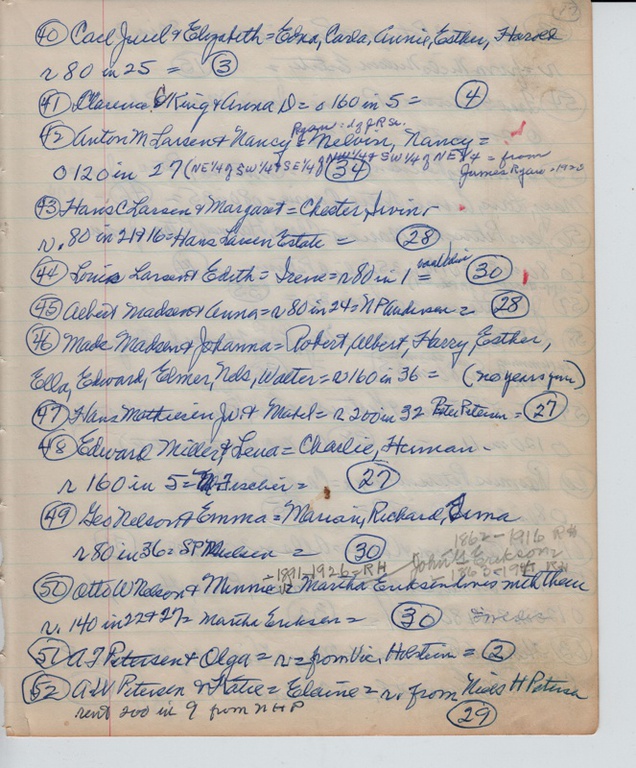 40 Carl Juul & Elizabeth = Edna, Carla, Annie, Esther, Harold
r 80 in 25 = 3
41 Clarence King & Anna D = o 160 in 5 = 4
Ryan: d of J R Sr.
42 Anton M Larsen & Nancy = Melvin, Nancy =
O 120 in 27 (NE 1/4 of SW 1/4 & SE 1/4 of NW 1/4 & SW 1/4 of NE 1/4 = from
34 James Ryan
43 Hans C Larsen & Margaret = Chester, Irvin
r. 80 in 21916 = Hans Larsen Estate = 28
44 Louis Larsen & Edith = Irene = r 80 in 1 = 30
45 Albert Madsen & Anna = r 80 in 24 = N P Andersen = 28
46 Mads Madsen & Johanna = Robert, Albert, Harry, Esther,
Ella, Edward, Elmer, Nels, Walter = r 160 in 36 = (no years given)
47 Hans Mathiesen Jr. & Mabel = r 200 in 32 Peter Petersen = 27
48 Edward Miller & Lena = Charlie, Herman -
r 160 in 5 = Fischer = 27
49 Geo Nelson & Emma = Marian, Richard, Erma
1862-1916 RH
r 80 in 36 = S P Nielsen = 30
John G Erikson
-1891-1926 = RH
50 Otto W Nelson & Minnie Martha Eriksen lives with them
r. 140 in 22 & 27 = Martha Eriksen = 30
51 A J Petersen & Olga = r = from Vic, Holstein = 2
52 A W Petersen & Katie = Elaine = r. from Niels H Petersen
rent 200 in 9 from N H P
29